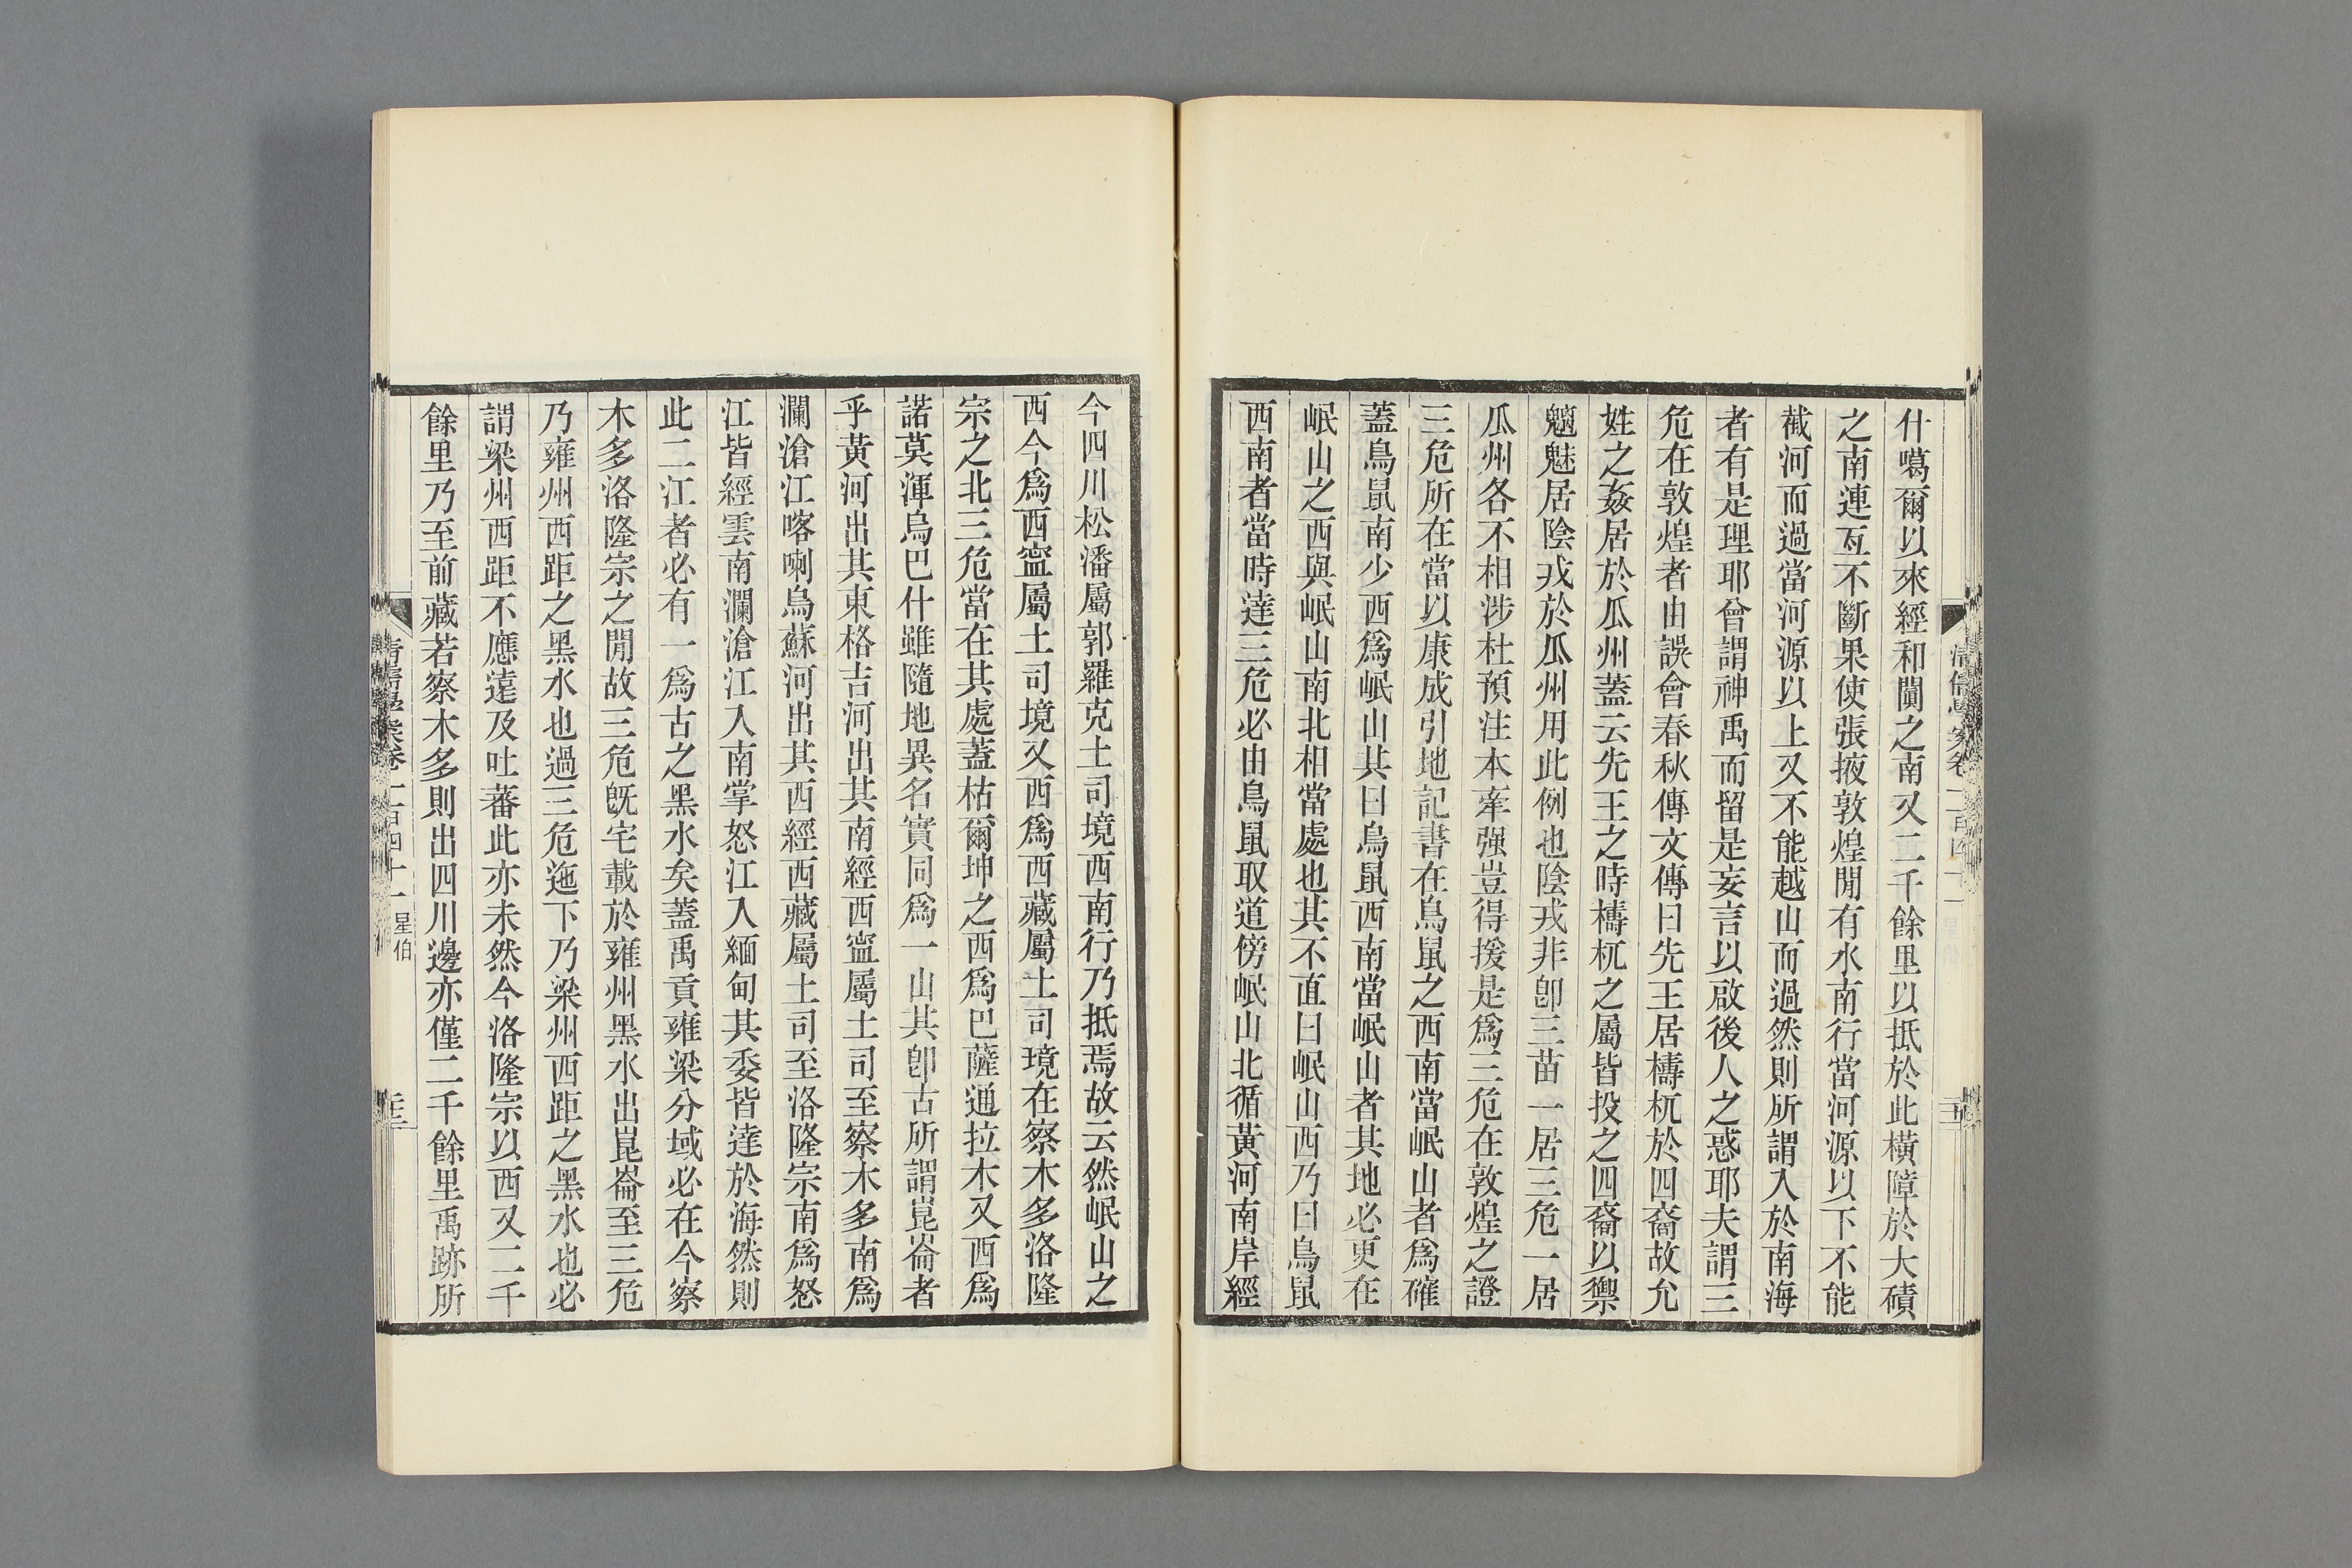 什噶爾以來經和闐之南又二千餘里以抵於此橫障於大磧
之南連亙不斷果使張掖敦煌閒有水南行當河源以下不能
截河而過當河源以上又不能越山而過然則所謂入於南海
者有是理耶曾謂神禹而留是妄言以啟後人之惑耶夫謂三
危在敦煌者由誤會春秋傳文傳曰先王居檮杌於四裔故允
姓之姦居於瓜州蓋云先王之時檮杌之屬皆投之四裔以禦
魑魅居陰戎於瓜州用此例也陰戎非卽三苗一居三危一居
瓜州各不相涉杜預注本牽强豈得援是爲三危在敦煌之證
三危所在當以康成引地記書在鳥鼠之西南當岷山者爲確
蓋鳥鼠南少西爲岷山其曰鳥鼠西南當岷山者其地必更在
岷山之西與岷山南北相當處也其不直曰岷山西乃曰鳥鼠
西南者當時達三危必由鳥鼠取道傍岷山北循黃河南岸經
今四川松潘屬郭羅克土司境西南行乃抵焉故云然岷山之
西今爲西寍屬土司境又西爲西藏屬土司境在察木多洛隆
宗之北三危當在其處蓋枯爾坤之西爲巴薩通拉木又西爲
諾莫渾烏巴什雖隨地異名實同爲一山其卽古所謂崑崙者
乎黃河出其東格吉河出其南經西寍屬土司至察木多南爲
瀾滄江喀喇烏蘇河出其西經西藏屬土司至洛隆宗南爲怒
江皆經雲南瀾滄江入南掌怒江入緬甸其委皆達於海然則
此二江者必有一爲古之黑水矣蓋禹貢雍梁分域必在今察
木多洛隆宗之閒故三危旣宅載於雍州黑水出崑崙至三危
乃雍州西距之黑水也過三危迤下乃梁州西距之黑水也必
謂梁州西距不應遠及吐蕃此亦未然今洛隆宗以西又二千
餘里乃至前藏若察木多則出四川邊亦僅二千餘里禹跡所
清儒學案卷二百四十一 星伯